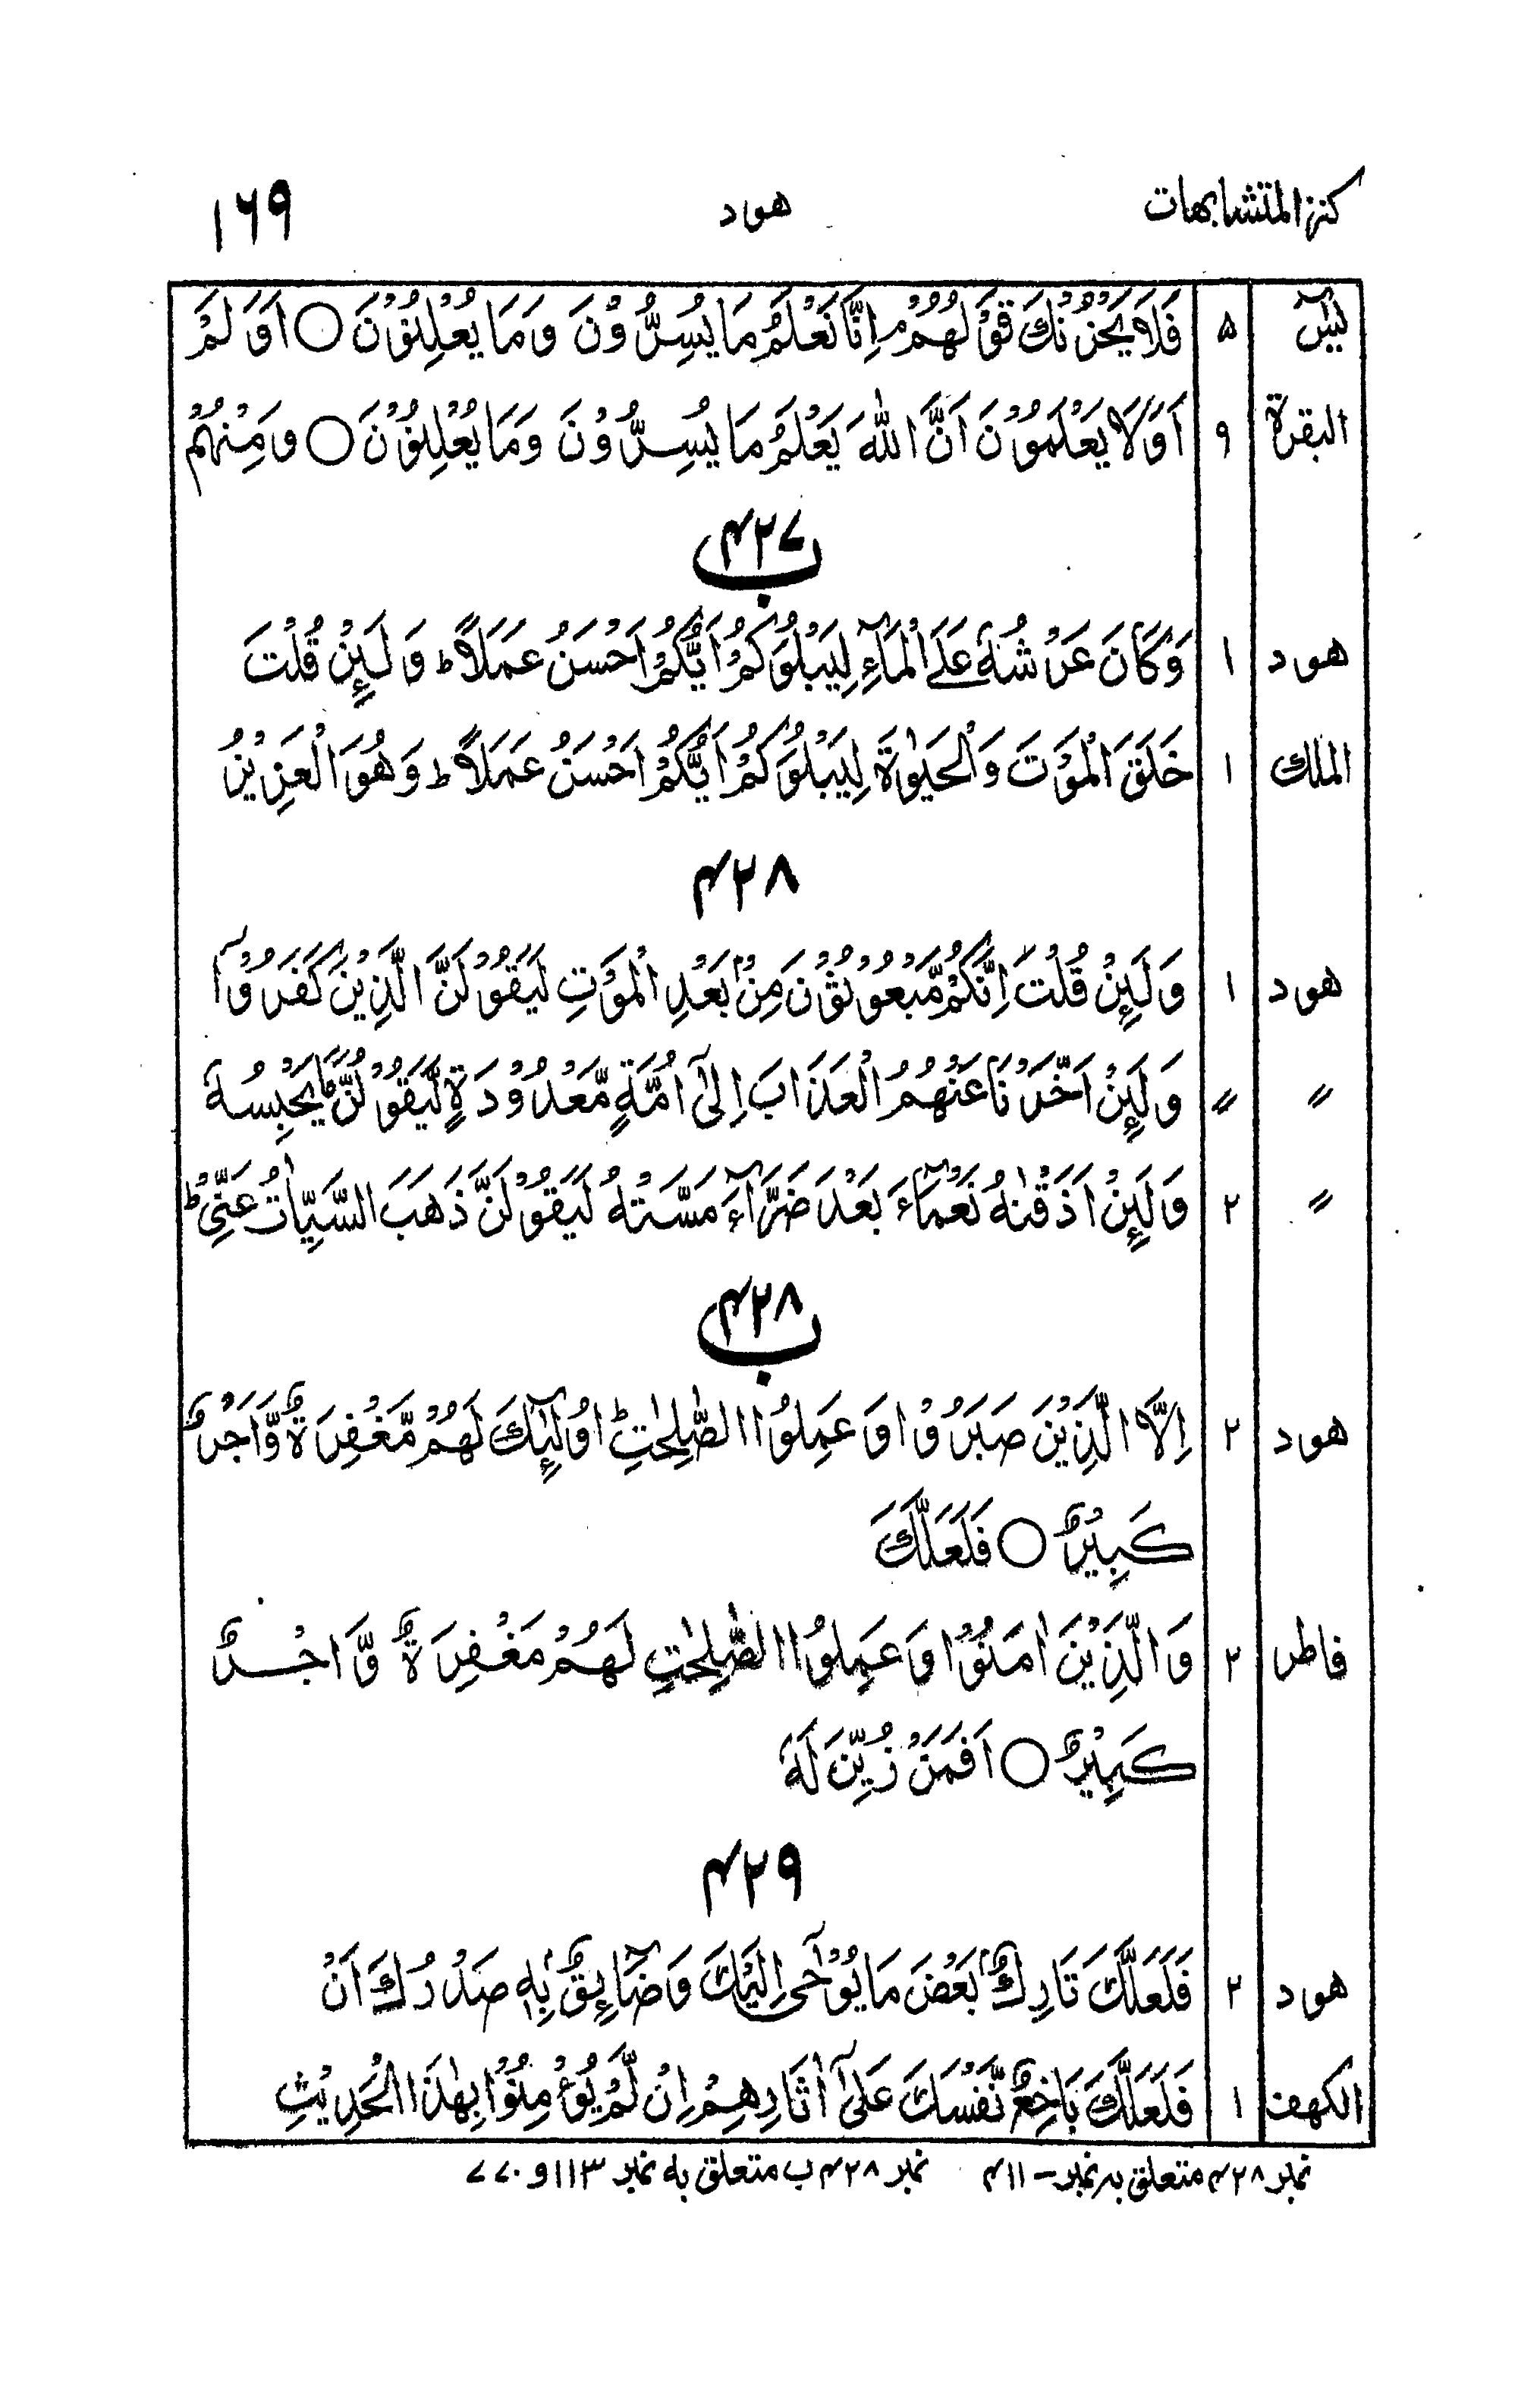 كنز المتشابهات هود ١٦٩
يٰسٓ ۵ فَلَا يَحْزُنْكَ قَوْلُهُمْ ۘ اِنَّا نَعْلَمُ مَا يُسِرُّوْنَ وَمَا يُعْلِنُوْنَ ○ اَوَلَمْ
البقرة ٩ اَوَلَا يَعْلَمُوْنَ اَنَّ اللّٰهَ يَعْلَمُ مَا يُسِرُّوْنَ وَمَا يُعْلِنُوْنَ ○ وَمِنْهُمْ
۴۲۷ ب
هود ١ وَّكَانَ عَرْشُهٗ عَلَى الْمَآءِ لِيَبْلُوَكُمْ اَيُّكُمْ اَحْسَنُ عَمَلًا ؕ وَلَئِنْ قُلْتَ
الملك ١ خَلَقَ الْمَوْتَ وَالْحَيٰوةَ لِيَبْلُوَكُمْ اَيُّكُمْ اَحْسَنُ عَمَلًا ؕ وَهُوَ الْعَزِيْزُ
۴۲۸
هود ١ وَلَئِنْ قُلْتَ اِنَّكُمْ مَّبْعُوْثُوْنَ مِنْۢ بَعْدِ الْمَوْتِ لَيَقُوْلَنَّ الَّذِيْنَ كَفَرُوْٓا
〃 〃 وَلَئِنْ اَخَّرْنَا عَنْهُمُ الْعَذَابَ اِلٰٓى اُمَّةٍ مَّعْدُوْدَةٍ لَّيَقُوْلُنَّ مَا يَحْبِسُهٗ
〃 ٢ وَلَئِنْ اَذَقْنٰهُ نَعْمَآءَ بَعْدَ ضَرَّآءَ مَسَّتْهُ لَيَقُوْلَنَّ ذَهَبَ السَّيِّاٰتُ عَنِّيْ ؕ
۴۲۸ ب
هود ٢ اِلَّا الَّذِيْنَ صَبَرُوْا وَعَمِلُوا الصّٰلِحٰتِ ؕ اُولٰٓئِكَ لَهُمْ مَّغْفِرَةٌ وَّاَجْرٌ
كَبِيْرٌ ○ فَلَعَلَّكَ
فاطر ٢ وَالَّذِيْنَ اٰمَنُوْا وَعَمِلُوا الصّٰلِحٰتِ لَهُمْ مَغْفِرَةٌ وَّاَجْرٌ
كَبِيْرٌ ○ اَفَمَنْ زُيِّنَ لَهٗ
۴۲۹
هود ٢ فَلَعَلَّكَ تَارِكٌۢ بَعْضَ مَا يُوْحٰٓى اِلَيْكَ وَضَآئِقٌۢ بِهٖ صَدْرُكَ اَنْ
الكهف ١ فَلَعَلَّكَ بَاخِعٌ نَّفْسَكَ عَلٰٓى اٰثَارِهِمْ اِنْ لَّمْ يُؤْمِنُوْا بِهٰذَا الْحَدِيْثِ
نمبر ۴۲۸ متعلق به نمبر – ۴۱۱ نمبر ۴۲۸ ب متعلق به نمبر ۱۱۳ و ۷۷۰